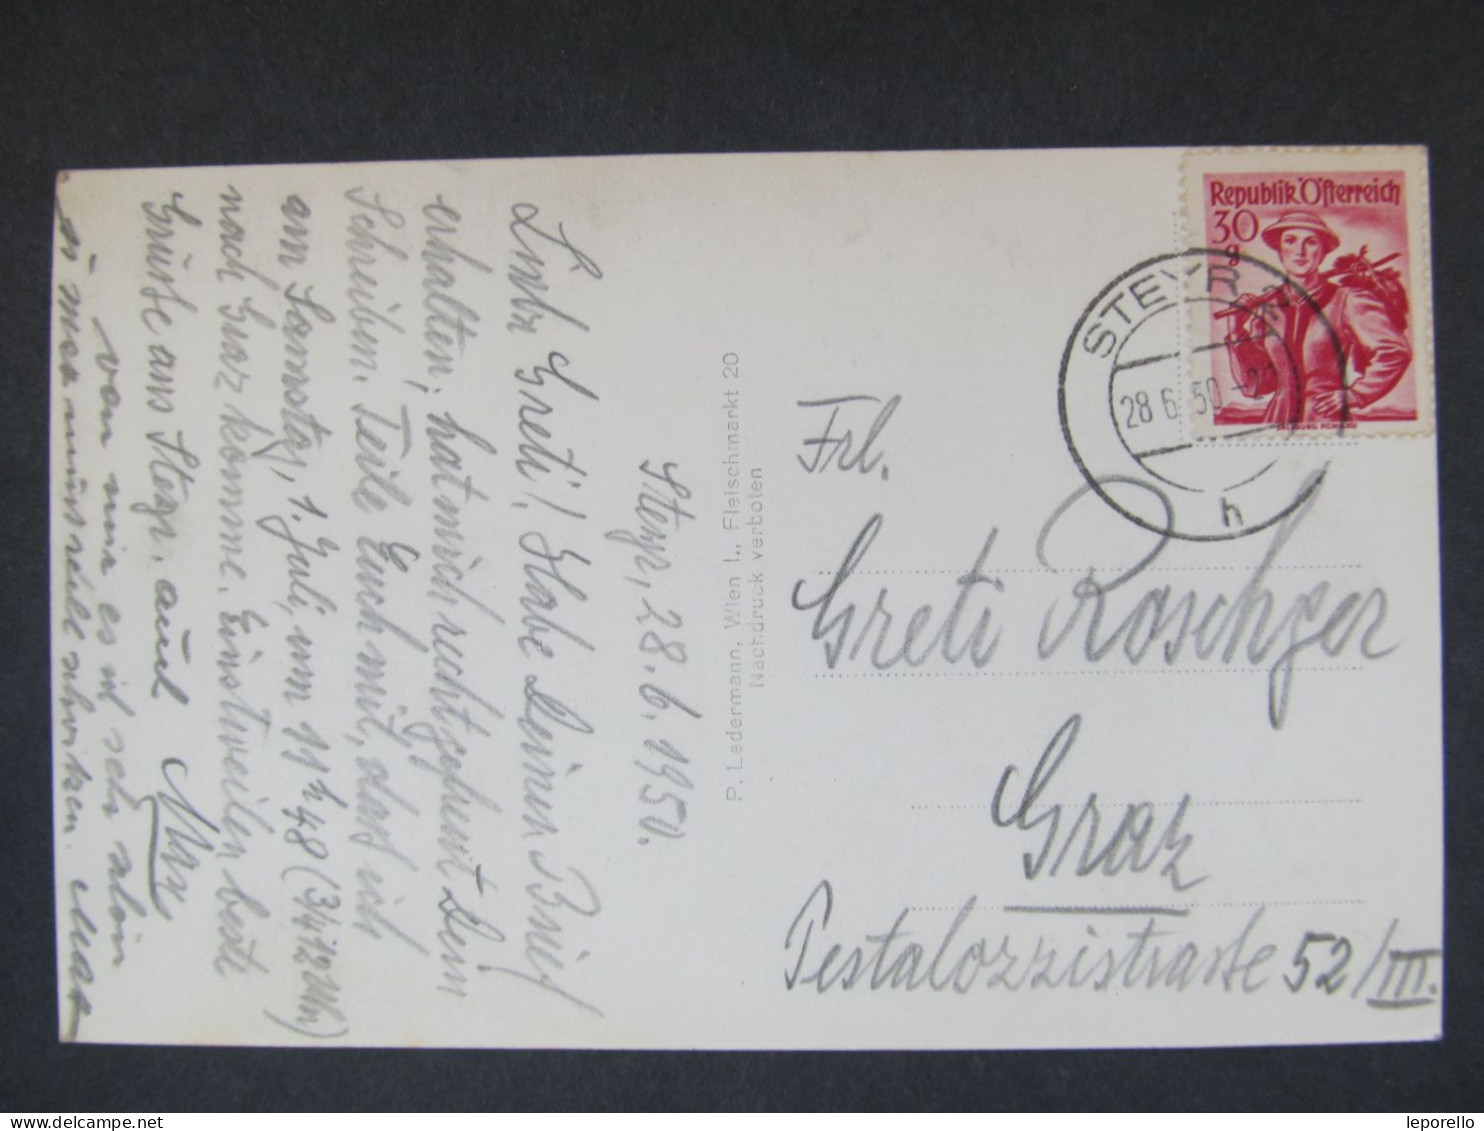 Steyr, 28. 6. 1950.
Liebe Greti! Habe Deinen Brief
erhalten; hat mich recht gefreut Dein
Schreiben. Teile Euch mit, dass ich
am Samstag, 1. Juli, um 11h 48 (3/4 12 Uhr)
nach Graz komme. Einstweilen beste
Grüße aus Steyr. auch Max
von mir es ist sehr schön
Frl.
Greti Roschger
Graz
Pestalozzistraße 52/III.
P. Ledermann, Wien I., Fleischmarkt 20
Nachdruck verboten
Republik Österreich
30
g
STEYR
28 6. 50
h
leporello